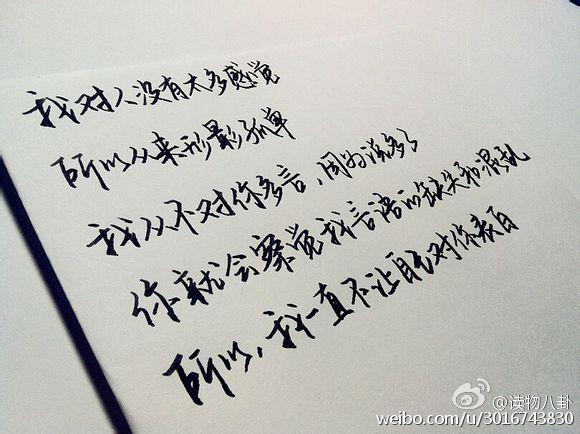 我对人没有太多感觉
所以从来形影孤单
我从不对你多言,因为说多了
你就会察觉我言语的缺失和混乱
所以,我一直不让自己对你表白
@读物八卦
weibo.com/u/3016743830